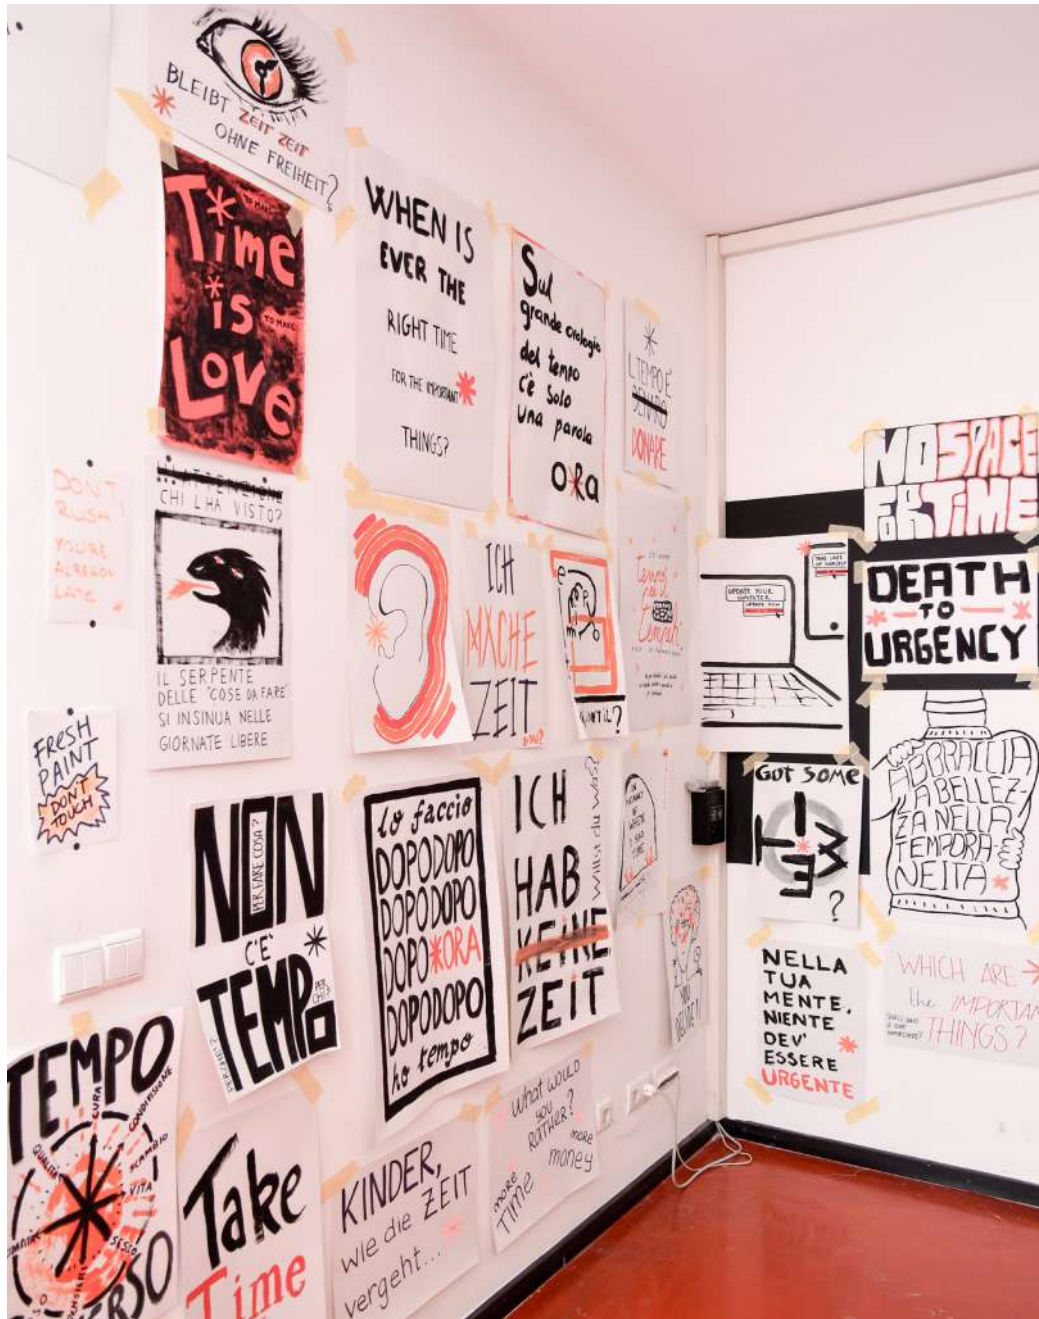 BLEIBT ZEIT ZEIT
OHNE FREIHEIT?
Time
TO MAKE
is
TO MAKE
Love
WHEN IS
EVER THE
RIGHT TIME
FOR THE IMPORTANT
THINGS?
Sul
grande orologio
del tempo
c'è solo
una parola
ORA
L TEMPO È
DENARO
DONARE
DON'T
RUSH
YOU'RE
ALREADY
LATE
ATTENZIONE
CHI L'HA VISTO?
IL SERPENTE
DELLE "COSE DA FARE"
SI INSINUA NELLE
GIORNATE LIBERE
ICH
MACHE
ZEIT
UPDATE YOUR
COMPUTER
UPDATE NOW
TAKE CARE
OF YOURSELF
NO SPACE
FOR TIME
DEATH
TO
URGENCY
FRESH
PAINT
DON'T
TOUCH
NON
PER FARE COSA?
C'È
TEMPO
PERCHÉ?
lo faccio
DOPODOPO
DOPODOPO
DOPO*ORA
DOPODOPO
ho tempo
ICH
HAB
KEINE
ZEIT
Willst du was?
GOT SOME
TIME
?
ABBRACCIA
LA BELLEZ-
ZA NELLA
TEMPORA-
NEITÀ
NELLA
TUA
MENTE,
NIENTE
DEV'
ESSERE
URGENTE
WHICH ARE
the IMPORTAN
THINGS?
TEMPO
CURA
CONDIVISIONE
SCAMBIO
VITA
QUALITÀ
Take
Time
KINDER,
wie die ZEIT
vergeht...
What would
you
RATHER?
more
money
more
Time